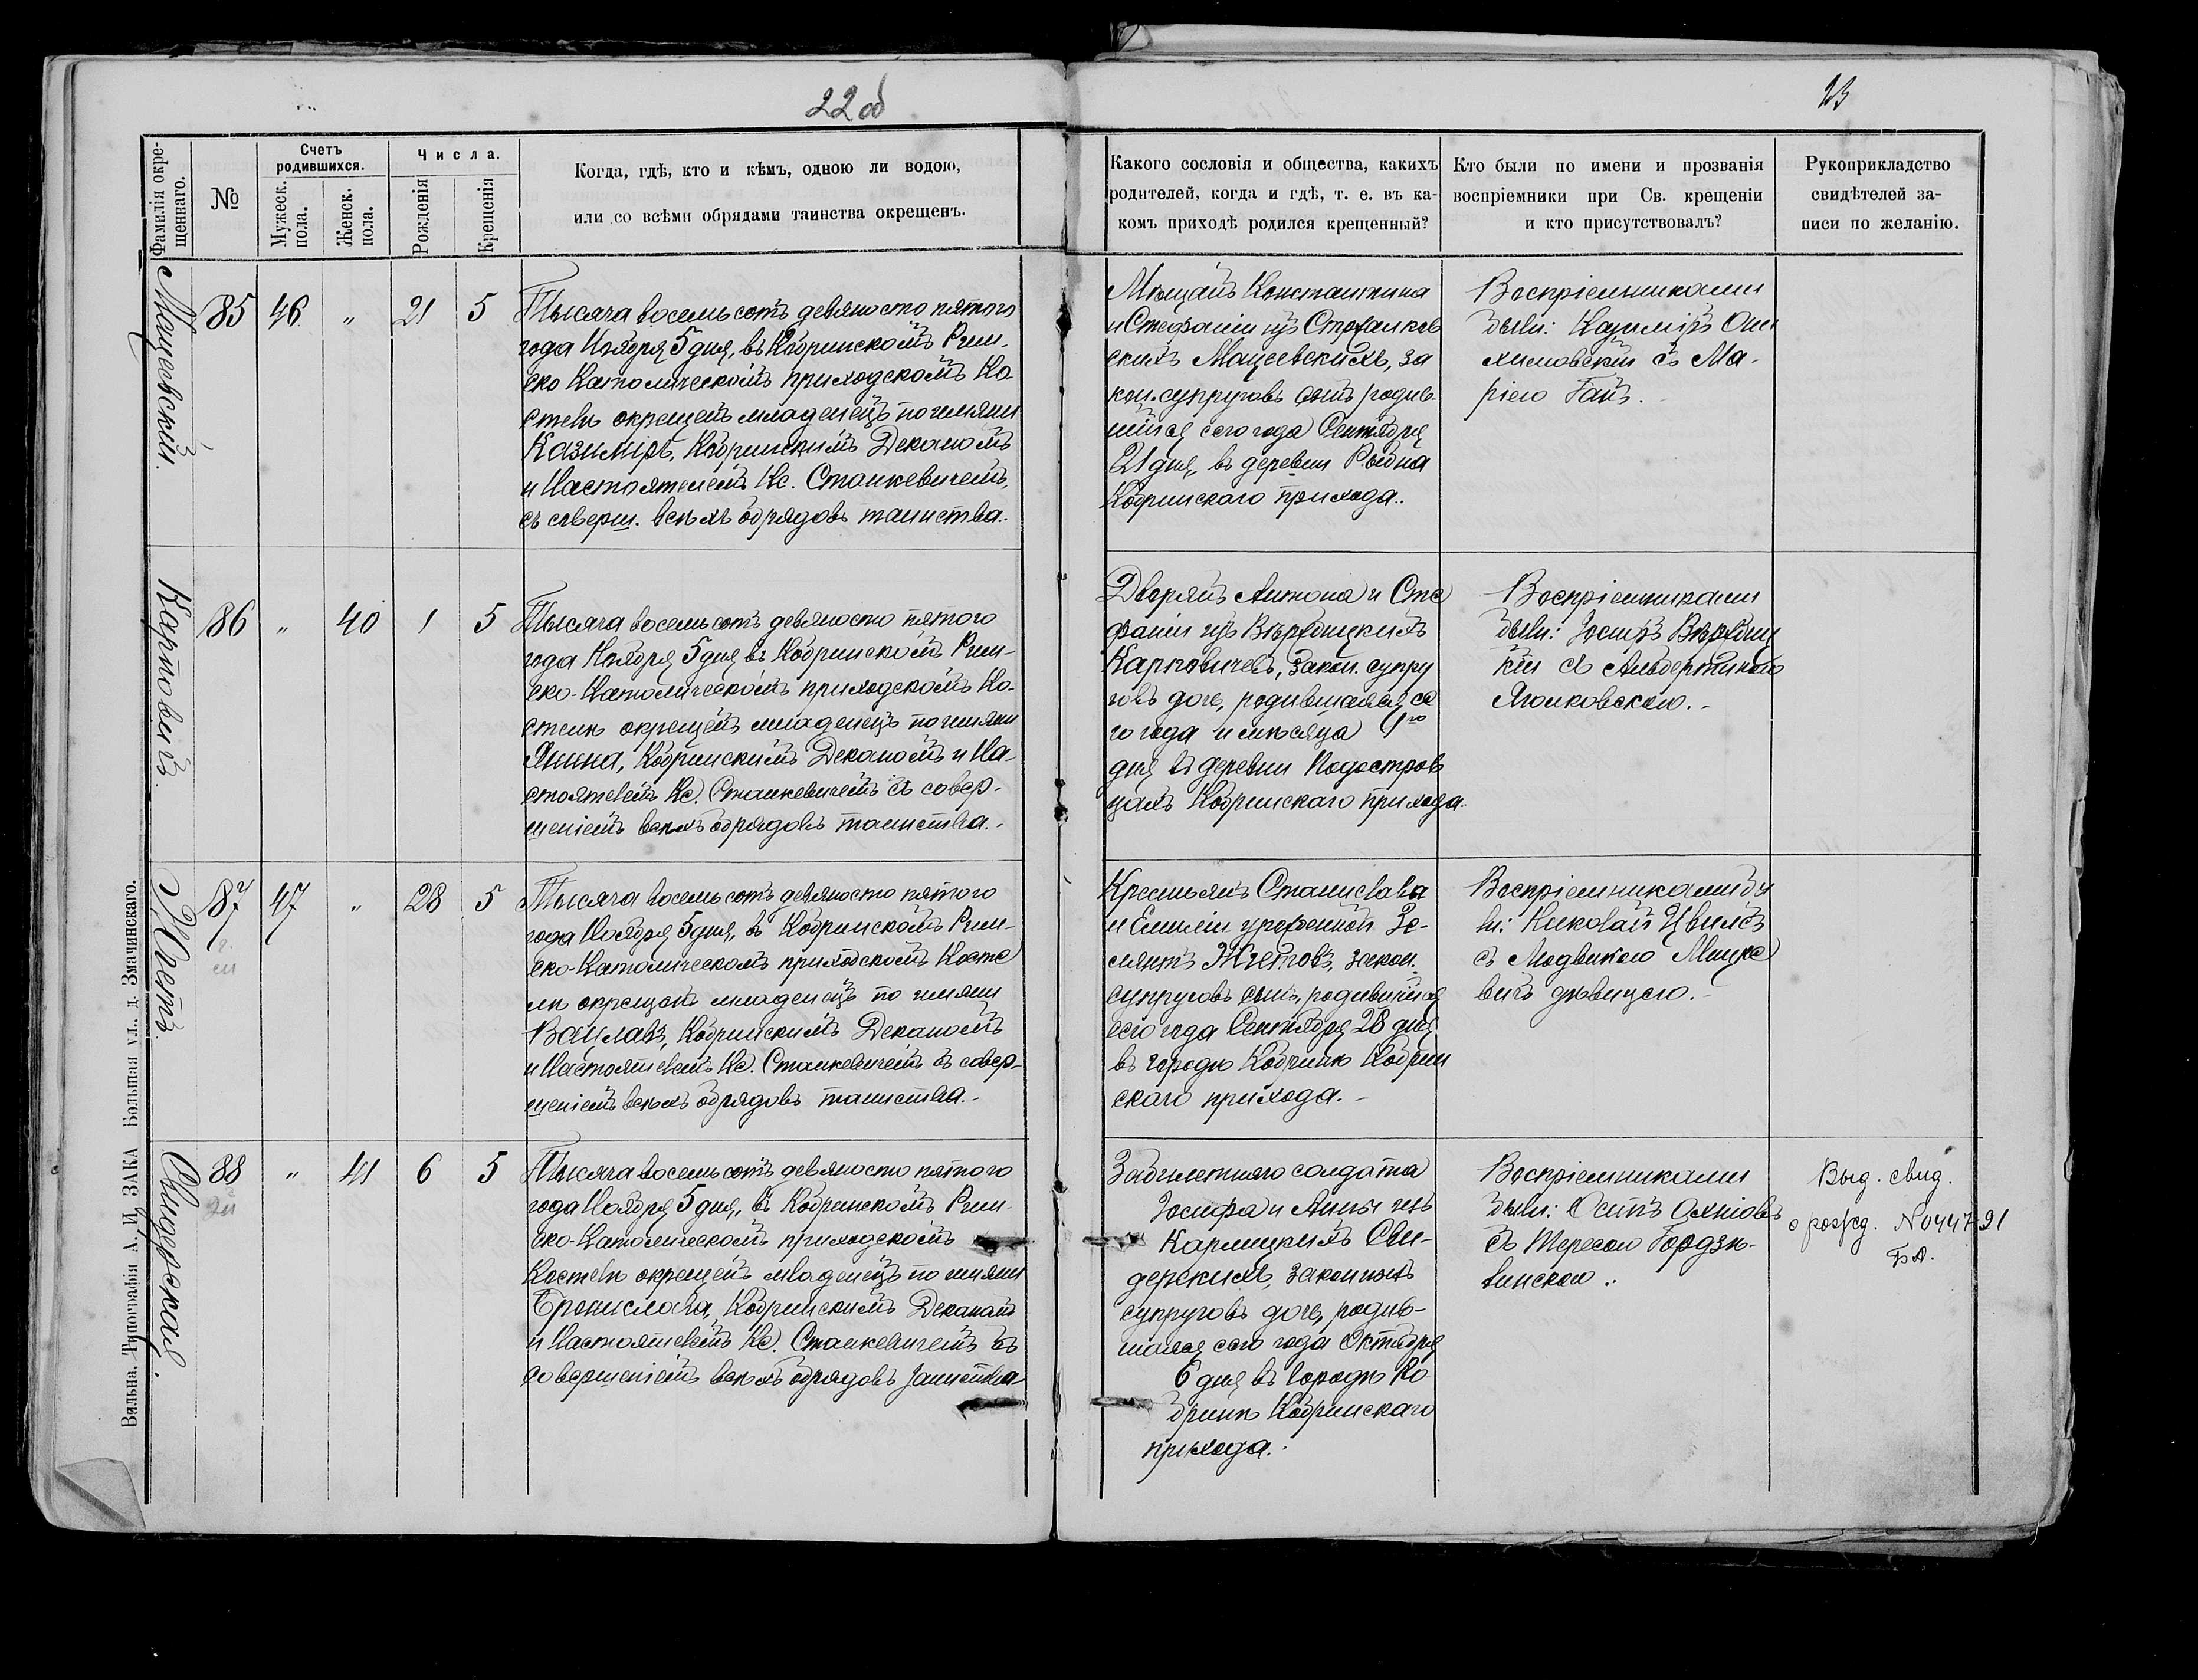 22 об
23
Фамилія окре-
щеннаго.
№
Счетъ
родившихся.
Мужеск.
пола.
Женск.
пола.
Числа.
Рожденія
Крещенія
Когда, гдѣ, кто и кѣмъ, одною ли водою,
или со всѣми обрядами таинства окрещенъ.
Какого сословія и общества, какихъ
родителей, когда и гдѣ, т. е. въ ка-
комъ приходѣ родился крещенный?
Кто были по имени и прозванія
воспріемники при Св. крещеніи
и кто присутствовалъ?
Рукоприкладство
свидѣтелей за-
писи по желанію.
Мацеевскій.
85 46 " 21 5
Тысяча восемьсотъ девяносто пятого
года Ноября 5 дня, въ Кобринскомъ Рим-
ско Католическомъ приходскомъ Ко-
стелѣ окрещенъ младенецъ по имяни
Казиміръ, Кобринскимъ Деканомъ
и Настоятелемъ Кс. Станкевичемъ,
съ соверш. всѣхъ обрядовъ таинства.
Мѣщанъ Константина
и Стефаніи изъ
скихъ Мацеевскихъ, за
кон. супруговъ сынъ родив-
шійся сего года Сентября
21 дня, въ деревни Рыбна
Кобринскаго прихода.
Воспріемниками
были: Казиміръ
съ Ма-
ріею Гай.
Карповичъ
86 " 40 1 5
Тысяча восемьсотъ девяносто пятого
года Ноября 5 дня въ Кобринскомъ Рим-
ско-Католическомъ приходскомъ Ко-
стелѣ окрещенъ младенецъ по имяни
Янина, Кобринскимъ Деканомъ и На-
стоятелемъ Кс. Станкевичемъ съ совер-
шеніемъ всѣхъ обрядовъ таинства.
Дворянъ Антона и Сте
фаніи изъ
Карповичевъ, закон. супру
говъ дочь, родившаяся се
го года и мѣсяца 1го
дня въ деревни Подостров
цахъ Кобринскаго прихода.
Воспріемниками
были: Іосифъ
кій съ Альбертиною
Яголковскою.
Жметъ
87 47 " 28 5
Тысяча восемьсотъ девяносто пятого
года Ноября 5 дня, въ Кобринскомъ Рим-
ско-Католическомъ приходскомъ Косте
лѣ окрещенъ младенецъ по имяни
Вацлавъ, Кобринскимъ Деканомъ
и Настоятелемъ Кс. Станкевичемъ съ совер-
шеніемъ всѣхъ обрядовъ таинства.
Крестьянъ Станислава
и Емиліи урожденной Зе-
лянтъ Жметовъ, закон.
супруговъ сынъ, родившійся
сего года Сентября 28 дня
въ городѣ Кобринѣ Кобрин
скаго прихода.
Воспріемниками бы
ли: Николай
съ Людвикою Мицке
вичъ дѣвицею.
Свидерская.
88 " 41 6 5
Тысяча восемьсотъ девяносто пятого
года Ноября 5 дня, въ Кобринскомъ Рим-
ско-Католическомъ приходскомъ
Костелѣ окрещенъ младенецъ по имяни
Бронислава, Кобринскимъ Деканомъ
и Настоятелемъ Кс. Станкевичемъ съ
совершеніемъ всѣхъ обрядовъ таинства
солдата
Іосифа и Анны изъ
Карлицкихъ Сви-
дерскихъ, законныхъ
супруговъ дочь, родив-
шаяся сего года Октября
6 дня въ городѣ Ко
бринѣ Кобринскаго
прихода.
Воспріемниками
были: Осипъ
съ Тересою Гордзѣ-
Выд. свид.
о рожд. № 0447-91
Вильна. Типографія А. И. ЗАКА Большая ул., д. Змачинскаго.